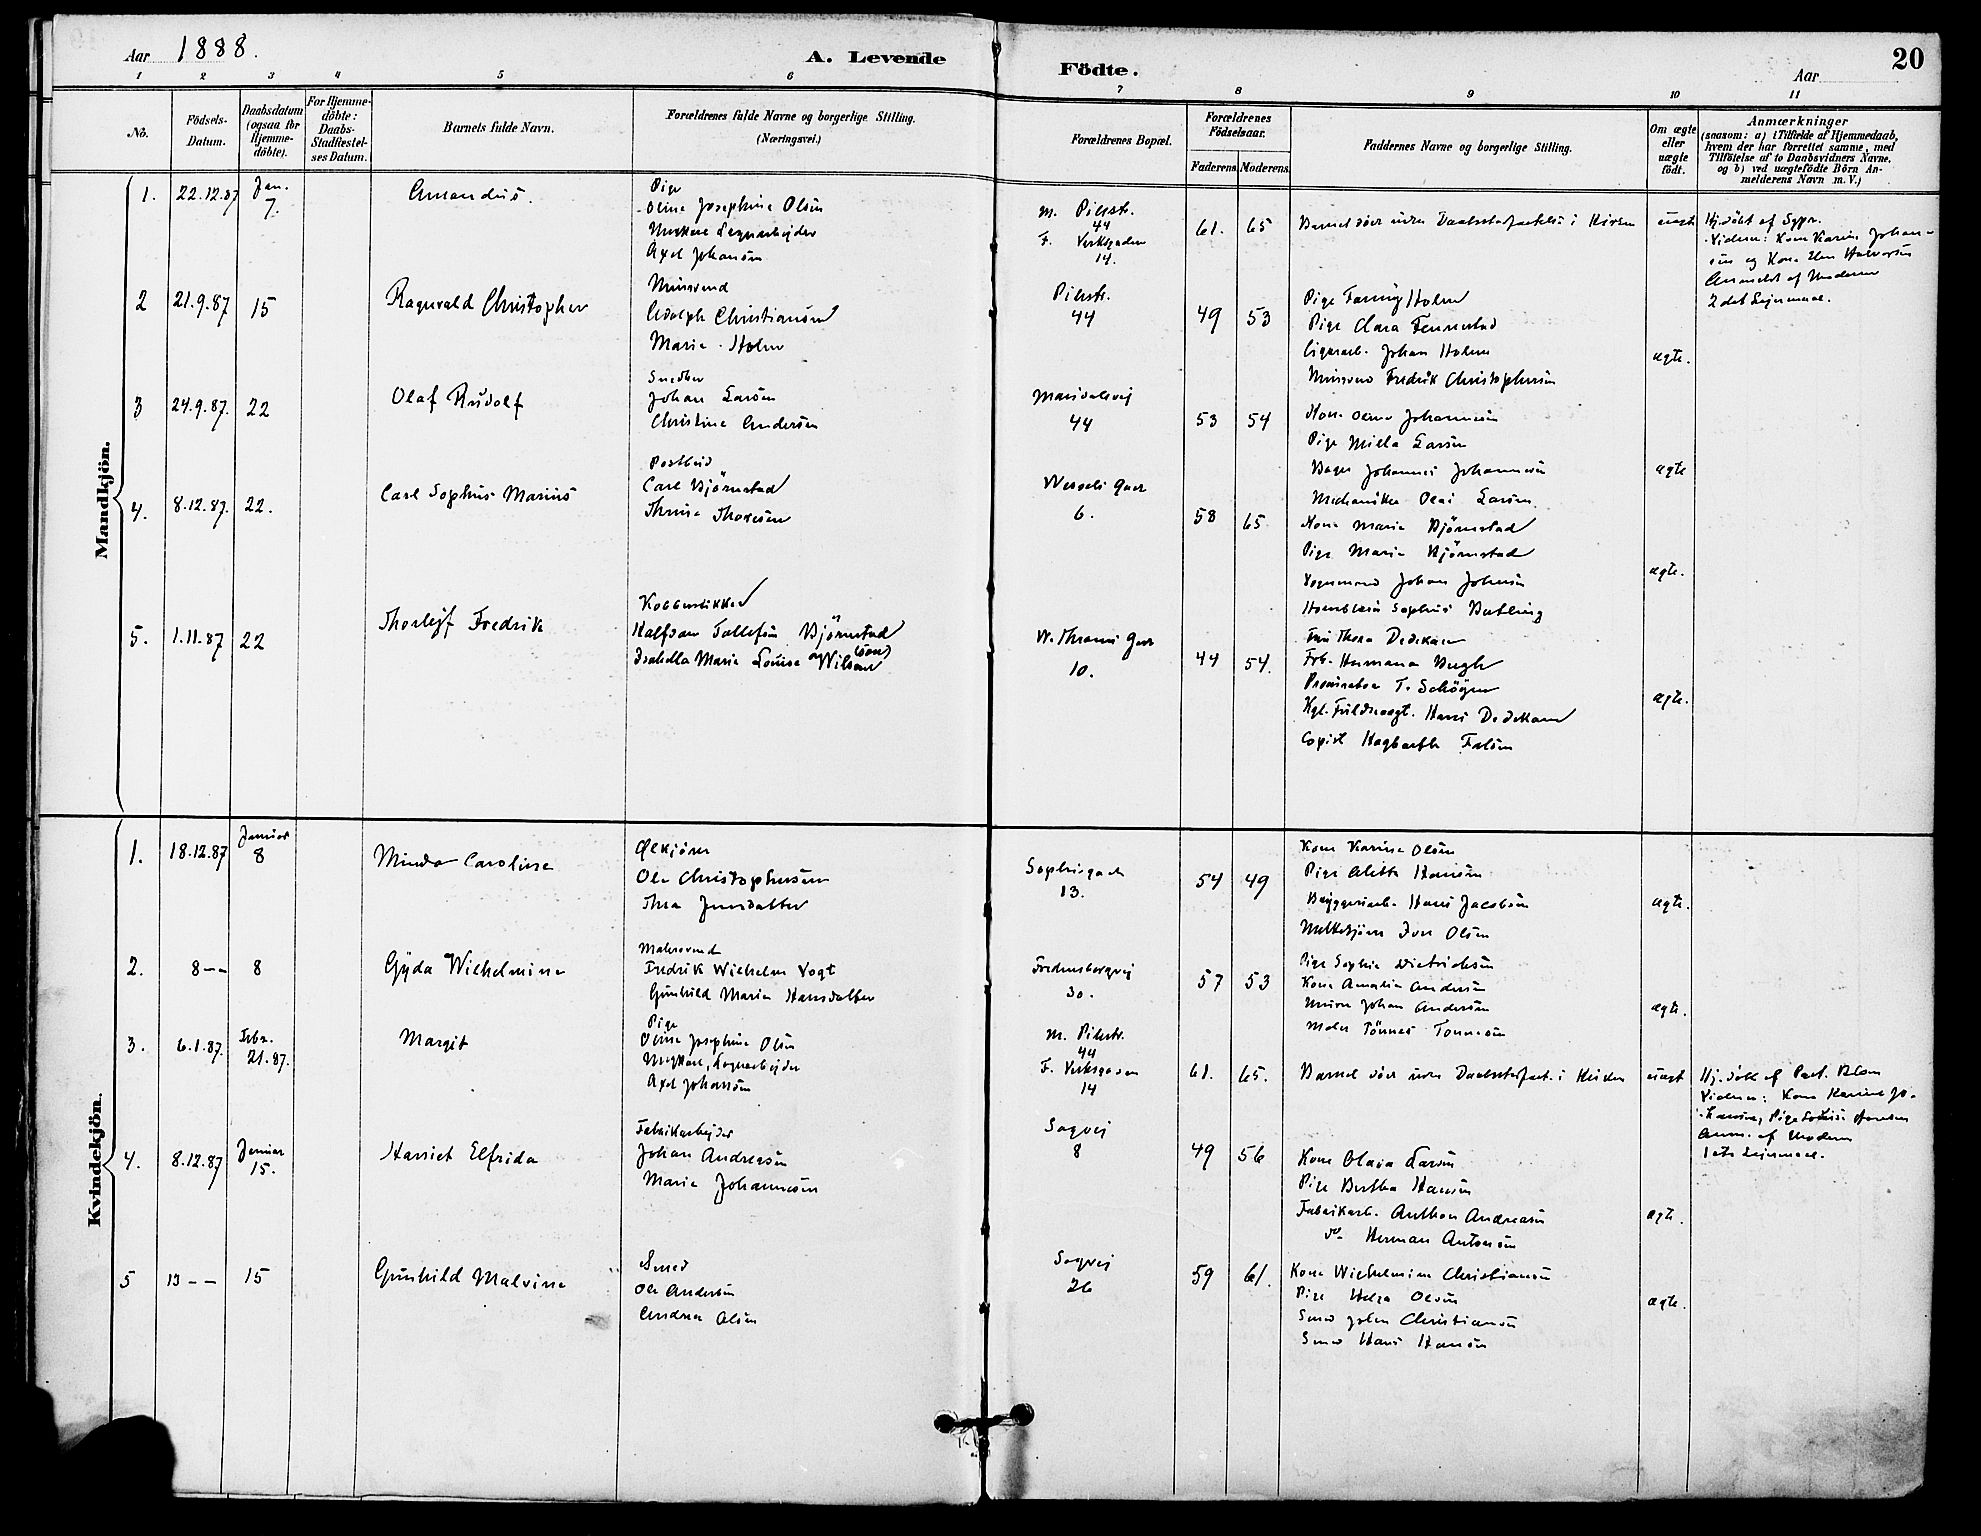 Aar 1888.
A. Levende
Födte.
Aar
20
1 2 3 4 5 6 7 8 9 10 11
No.
Födsels-Datum.
Daabsdatum (ogsaa for Hjemme-döbte).
For Hjemme-döbte: Daabs-Stadfæstel-ses Datum.
Barnets fulde Navn.
Forældrenes fulde Navne og borgerlige Stilling.
(Næringsvei.)
Forældrenes Bopæl.
Forældrenes Födselsaar.
Faderens Moderens
Faddernes Navne og borgerlige Stilling.
Om ægte eller uægte födt.
Anmærkninger
(saasom: a) i Tilfælde af Hjemmedaab,
hvem der har forrettet samme, med
Tilföielse af to Daabsvidners Navne,
og b) ved uægtefödte Börn An-
melderens Navn m. V.)
Mandkjön.
1. 22.12.87 Jan. 7. Amandus.
Pige
Oline Josephine Olsen
Axel Johansen
m. Pilestr.
44
F. Verksgaden
14.
61. 65
uægt
Hj.döbt af
Vidner: Kone Karine Johan-
sen og Kone
Anmeldt af Moderen
2det Leiermaal.
2 21.9.87 15 Ragnvald Christopher
Murersvend
Adolph Christiansen
Marie Holm
Pilestr.
44
49 53
Pige Fanny Holm
Pige Clara Fennestad
Cigararb. Johan Holm
Murersvend Fredrik Christophersen
ægte.
3 24.9.87. 22 Olaf Rudolf
Snedker
Johan Larsen
Christine Andersen
Maridalsvej
44
53 54
Kone Oline Johannesen
Pige Milla Larsen
Bager Johannes Johannesen
Mechaniker Olai Larsen
ægte
4. 8.12.87. 22. Carl Sophus Marius
Postbud
Carl Björnstad
Thrine Thoresen
Wessels Gade
6.
58 65
Kone Maria Björnstad
Pige Marie Björnstad
Vognmand Johan Johnsen
ægte.
5. 1.11.87 22 Thorleif Fredrik
Kobberstikker
Halfdan Tollefsen Björnstad
Isabella Marie Louise Wilson
W. Thranes Gade
10.
44 54.
Fru Thora Dedekam
Frk. Hermana Bugh
T. Schögen
Kgl. Fuldmægt. Hans Dedekam
Copist Hagbarth Falsen
ægte.
Kvindekjön.
1. 18.12.87 Januar 8 Minda Caroline
Ölkjörer
Ole Christophersen
Thea Jensdatter
Sophiegade
13.
54 49
Kone Karine Olsen
Pige Alette Hansen
Bryggeriarb. Hans Jacobsen
Melkekjörer Iver Olsen
ægte.
2. 8-- 8 Gyda Wilhelmine
Malersvend
Fredrik Wilhelm Vogt
Gunhild Marie Hansdatter
Fredensborgvej
30.
57 53
Pige Sophie Dietrichsen
Kone Amalie Andersen
Murer Johan Andersen
Maler Tönnes Tonnesen
ægte.
3. 6.1.87. Febr. 21.87. Margit
Pige
Oline Josephine Olsen
Axel Johansen
m. Pilestr.
44
F. Verksgaden
14
61. 65.
Barnet död uden Daabsstadfæst. i Kirken
uægt
Hj.döbt af Past. Blom
Vidner: Kone Karine Jo-
hansen, Pige Hansen
Anm. af Moderen
1ste Leiermaal.
4. 8.12.87 Januar 15. Harriet Elfrida
Fabrikarbejder
Johan Andreasen
Marie Johannesen
Sagvej
8
49 56
Kone Olava Larsen
Pige Bertha Hansen
Fabrikarb. Anthon Andreasen
do Herman Antonsen
ægte.
5 13-- 15 Gunhild Malvine
Smed
Ole Andersen
Andrea Olsen
Sagvej
26
59 61.
Kone Wilhelmine Christiansen
Pige Helga Olsen
Smed John Christiansen
Smed Hans Hansen
ægte.